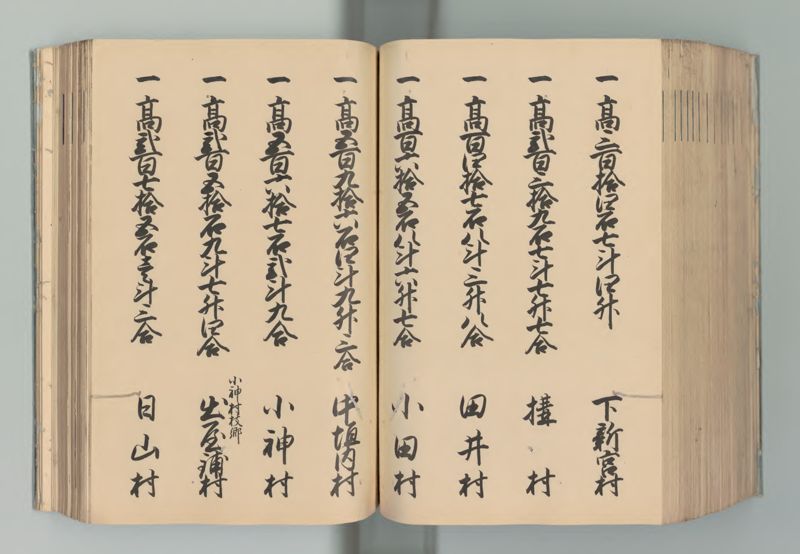 一髙三百拾四石七斗四升 下新宮村
一髙弐百三拾九石七斗七升七合 構村
一髙百四拾七石八斗三升八合 田井村
一髙百六拾五石八斗六升七合 小田村
一髙五百九拾六石四斗九升三合 中垣内村
一髙五百六拾七石弐斗九合 小神村
小神村枝郷
一髙弐百五拾石九斗七升四合 出屋鋪村
一髙弐百七拾五石壱斗三合 日山村